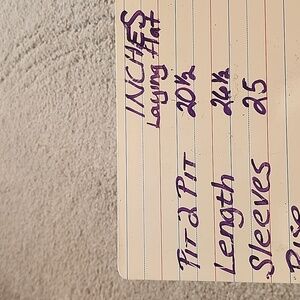 INCHES
Laying flat
PIT 2 PIT 20½
Length 26½
Sleeves 25